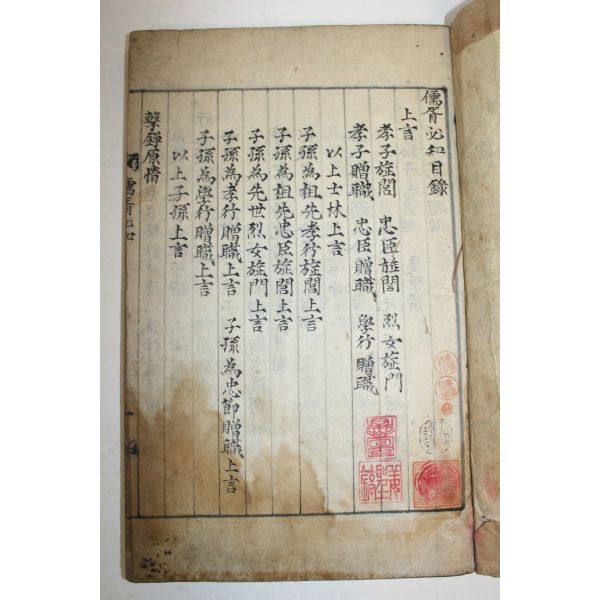 儒胥必知目錄
上言
孝子旌閭　忠臣旌閭　烈女旌門
孝子贈職　忠臣贈職　學行贈職
以上士林上言
子孫為祖先孝行旌閭上言
子孫為祖先忠臣旌閭上言
子孫為先世烈女旌門上言
子孫為孝行贈職上言　子孫為忠節贈職上言
子孫為學行贈職上言
以上子孫上言
擊錚原情
儒胥必知
一